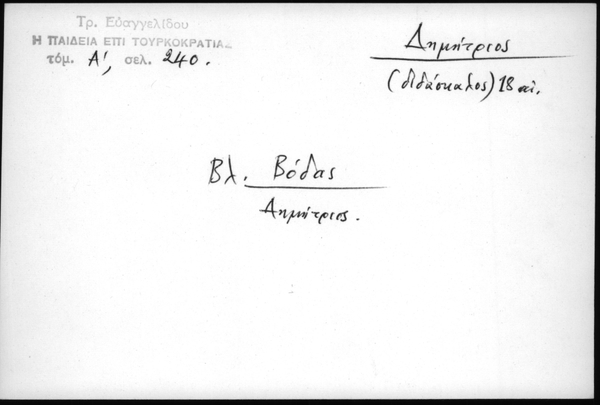 Τρ. Εὐαγγελίδου
Η ΠΑΙΔΕΙΑ ΕΠΙ ΤΟΥΡΚΟΚΡΑΤΙΑΣ
τόμ. Α', σελ. 240.
Δημήτριος
(διδάσκαλος) 18 αἰ.
Βλ. Βόδας
Δημήτριος.